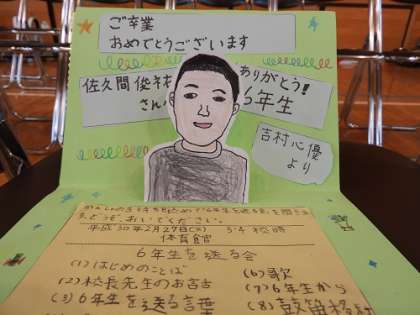 ご卒業
おめでとうございます
佐久間 俊
さん
ありがとう!
6年生
吉村心優
より
どうぞ、おいでください。
平成30年2月27日(火) 3・4校時
体育館
6年生を送る会
(1)はじめのことば
(2)校長先生のお言
(3)6年生を送る言葉
(6)歌
(7)6年生から
(8)鼓笛移